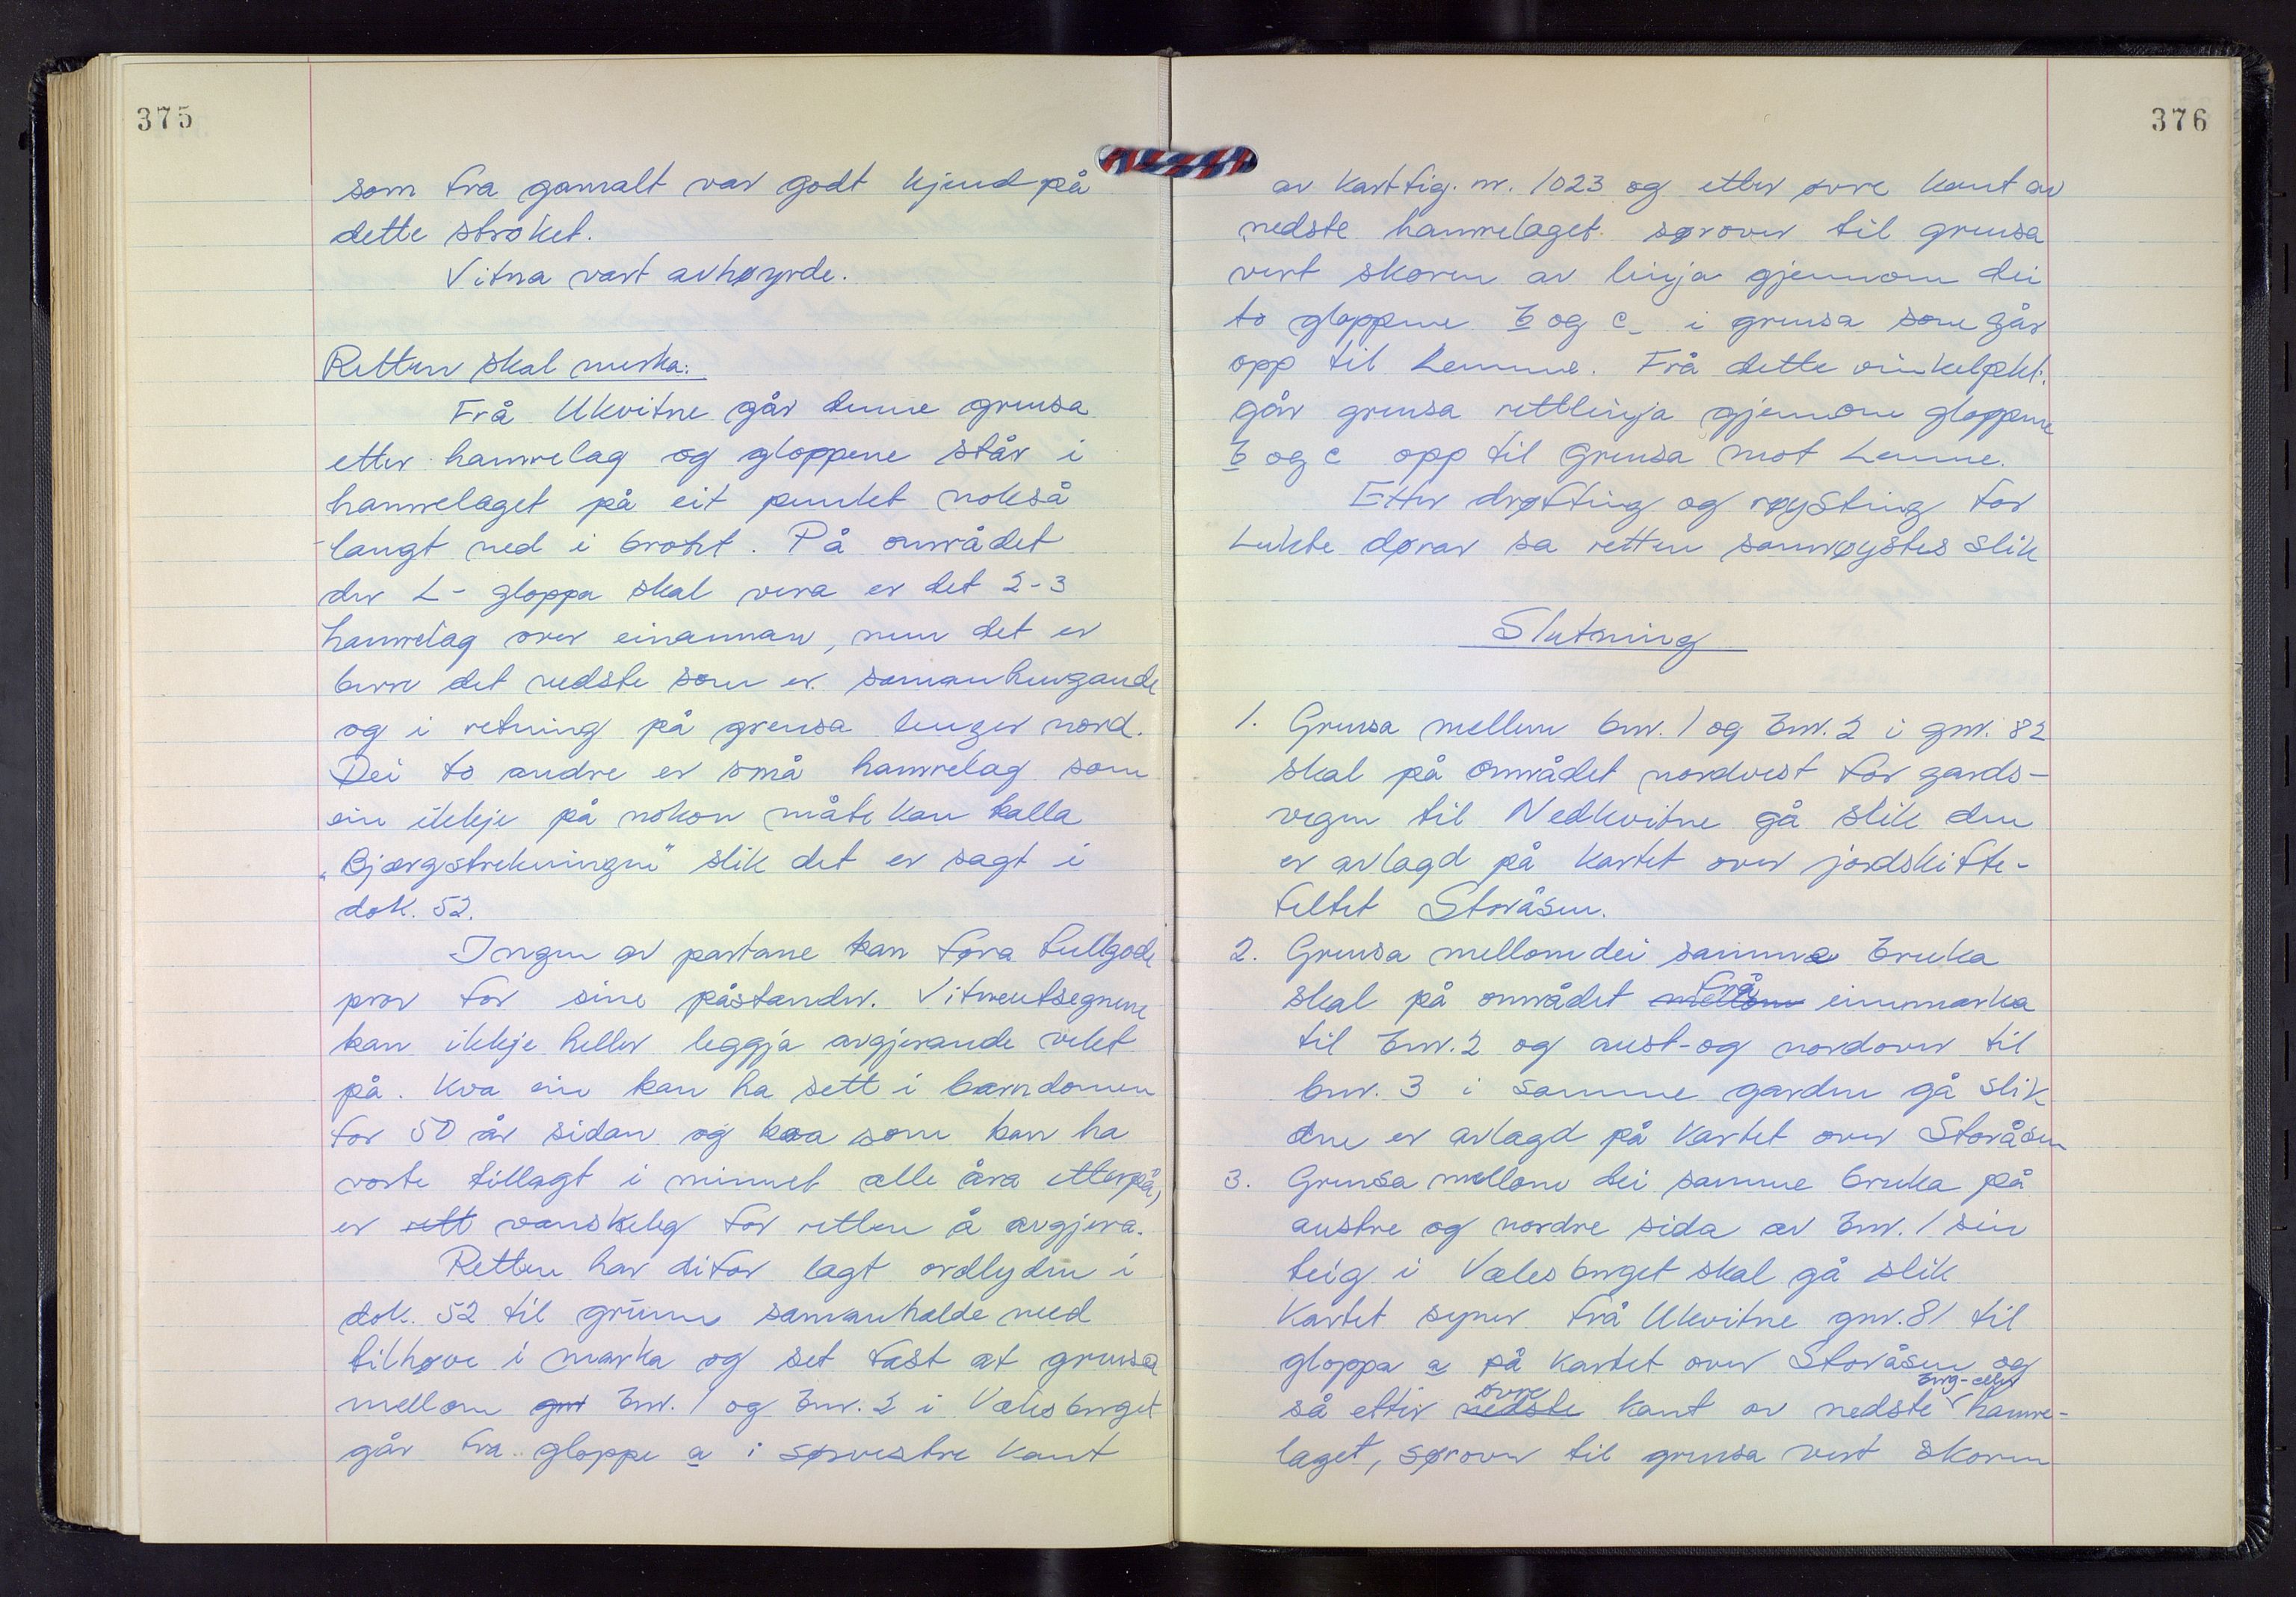 375
som fra gamalt var godt kjend på
dette strøket.
Vitna vart avhøyrde.
Retten skal merka:
Frå Ukvitne går denne grensa
etter hamrelag og gloppene står i
hamrelaget på eit punktet nokså
langt ned i brotet. På området
der L- gloppa skal vera er det 2-3
hamrelag over einannan, men det er
berre det nedste som er samanhengande
og i retning på grensa lenger nord.
Dei to andre er små hamrelag som
ein ikkje på nokon måte kan kalla
"Bjørgstrekningen" slik det er sagt i
dok. 52.
Ingen av partane kan føra fullgode
prov for sine påstander. Vitneutsegnene
kan ikkje heller leggja avgjerande vekt
på. Kva ein kan ha sett i barndomen
for 50 år sidan og kva som kan ha
vorte tillagt i minnet alle åra etterpå,
er rett vanskeleg for retten å avgjera.
Retten har difor lagt ordlyden i
dok. 52 til grunn samanhalde med
tilhøve i marka og set fast at grensa
mellom gnr bnr. 1 og bnr. 2 i Vælesberget
går fra gloppe a i sørvestre kant
376
av kartfig. nr. 1023 og etter øvre kant av
nedste hamrelaget sørover til grensa
vert skoren av linja gjennom dei
to gloppene b og c i grensa som går
opp til Lemme. Frå dette vinkelpkt.
går grensa rettlinja gjennom gloppene
b og c opp til grensa mot Lemme.
Etter drøfting og røysting for
lukte dørar sa retten samrøystes slik
Slutning
1. Grensa mellem bnr. 1 og bnr. 2 i gnr. 82
skal på området nordvest for gards-
vegen til Nedkvitne gå slik den
er avlagd på kartet over jordskifte-
feltet Storåsen.
2. Grensa mellom dei samme bruka
skal på området mellom frå einnmarka
til bnr. 2 og aust- og nordover til
bnr. 3 i samme garden gå slik
den er avlagd på kartet over Storåsen
3. Grensa mellom dei samme bruka på
austre og nordre sida av bnr. 1 sin
teig i Vælesberget skal gå slik
kartet syner frå Ukvitne gnr. 81 til
gloppa a på kartet over Storåsen og
så etter nedste øvre kant av nedste berg- eller hamre-
laget, sørover til grensa vert skoren